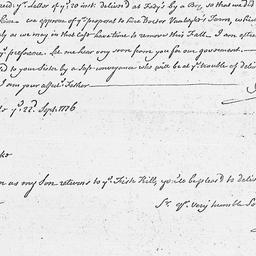 y.r Letter of y.e 20 inst. deliverd at Fedy's by a Boy, so that we did
we approve of y.r proposal to hire Doctor Vanwyke's Farm, which
ly as we may in that Case have time to remove this Fall. I am
y.r preference. Let me hear very soon from you for our government.
ed to your Sister by a safe conveyance who will be at y.e trouble of
I am your affect.e Father
to y.e 22.d Sept. 1776
as my Son returns to y.e Fish Kills, you'l be pleas'd to
S.r y.r very humble